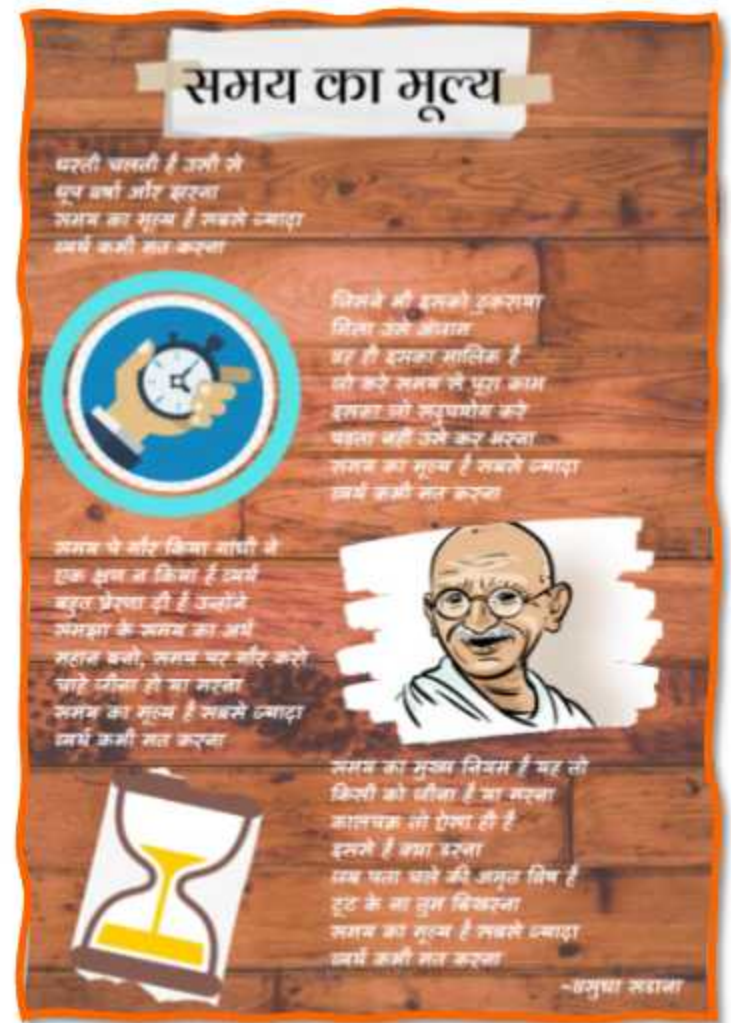 समय का मूल्य
धरती चलती है उसी से
धूप वर्षा और झरना
समय का मूल्य है सबसे ज्यादा
व्यर्थ कभी मत करना
जिसने भी इसको ठुकराया
मिला उसे अंजाम
वह ही इसका मालिक है
जो करे समय से पूरा काम
इसका जो सदुपयोग करे
पड़ता नहीं उसे कर भरना
समय का मूल्य है सबसे ज्यादा
व्यर्थ कभी मत करना
समय पे गौर किया गांधी ने
एक क्षण न किया है व्यर्थ
बहुत प्रेरणा दी है उन्होंने
समझा के समय का अर्थ
महान बनो, समय पर गौर करो
चाहे जीना हो या मरना
समय का मूल्य है सबसे ज्यादा
व्यर्थ कभी मत करना
समय का मुख्य नियम है यह तो
किसी को जीना है या मरना
कालचक्र तो ऐसा ही है
इससे है क्या डरना
जब पता चले की अमृत विष है
टूट के ना तुम बिखरना
समय का मूल्य है सबसे ज्यादा
व्यर्थ कभी मत करना
~वसुधा